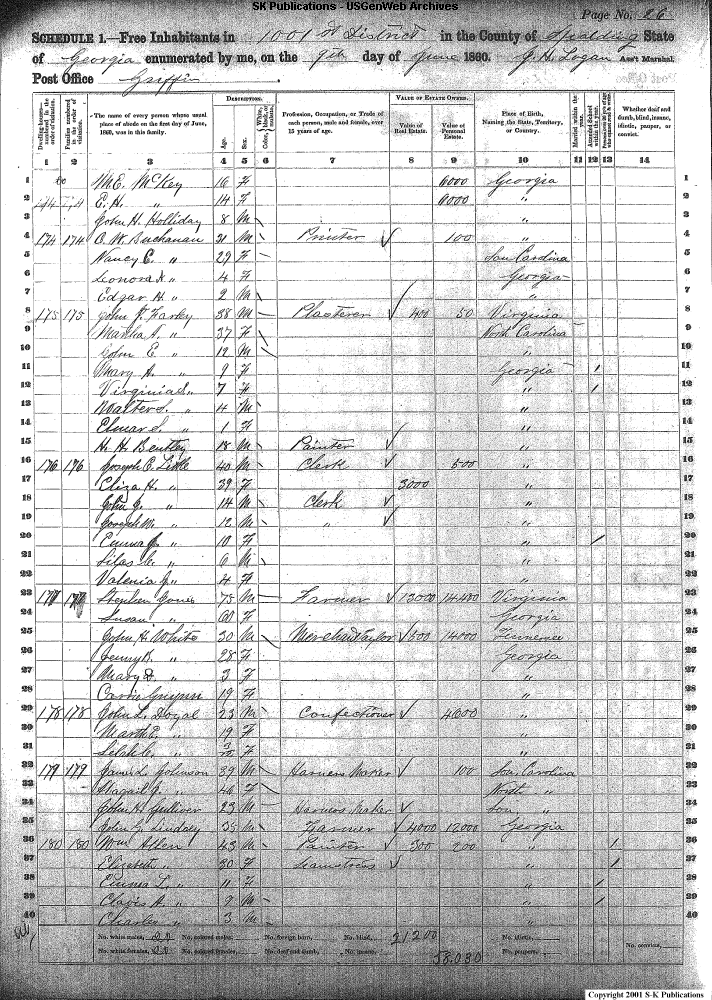 SK Publications - USGenWeb Archives
Page No. 26
SCHEDULE 1.—Free Inhabitants in 1001st District in the County of Spalding State
of Georgia enumerated by me, on the 9th day of June 1860. J. H. Logan Ass't Marshal.
Post Office Griffin.
Dwelling-houses—numbered in the order of visitation.
Families numbered in the order of visitation.
The name of every person whose usual place of abode on the first day of June, 1860, was in this family.
DESCRIPTION.
Age.
Sex.
Color, White, black, or mulatto.
Profession, Occupation, or Trade of each person, male and female, over 15 years of age.
VALUE OF ESTATE OWNED.
Value of Real Estate.
Value of Personal Estate.
Place of Birth, Naming the State, Territory, or Country.
Married within the year.
Attended School within the year.
Whether deaf and dumb, blind, insane, idiotic, pauper, or convict.
1 2 3 4 5 6 7 8 9 10 11 12 13 14
1 M. E. McKey 16 F 6000 Georgia 1
2 E. H. " 14 F 6000 " 2
3 John H. Holliday 8 M " 3
4 174 174 C. W. Buchanan 31 M Printer 100 " 4
5 Nancy C. " 29 F Sou Carolina 5
6 Leonora A. " 4 F Georgia 6
7 Edgar H. " 2 M " 7
8 175 175 John F. 38 M Plasterer 400 50 Virginia 8
9 Martha A. " 37 F North Carolina 9
10 John E. " 12 M " 10
11 Mary A. " 9 F Georgia 1 11
12 Virginia " 7 F " 1 12
13 Walter S. " 4 M " 13
14 " 1 F " 14
15 H. H. Bentley 18 M Painter " 15
16 176 176 Joseph C. 40 M Clerk 500 " 16
17 Eliza H. " 39 F 3000 " 17
18 John J. " 14 M Clerk " 18
19 Joseph M. " 12 M " " 19
20 Emma J. " 10 F " 1 20
21 Silas C. " 6 M " 21
22 Valenia J. " 4 F " 22
23 177 Stephen Jones 75 M Farmer 13000 14400 Virginia 23
24 Susan " 60 F Georgia 24
25 John H. White 30 M Merchant Taylor 500 14000 Tennessee 25
26 Jenny K. " 28 F Georgia 26
27 Mary D. " 3 F " 27
28 Carrie 19 F " 28
29 178 178 John L. Doyal 23 M Confectioner 4000 " 29
30 Martha E. " 19 F " 30
31 " F " 31
32 179 179 James L. Johnson 39 M Harness Maker 100 Sou. Carolina 32
33 Abagail J. " 40 F North " 33
34 John H. Gulliver 23 M Harness Maker Sou. " 34
35 John G. Lindsey 35 M Farmer 4000 12000 Georgia 35
36 180 180 Wm Allen 43 M Painter 300 200 " 1 36
37 Elizabeth " 30 F Seamstress " 1 37
38 Emma L. " 11 F " 1 38
39 A. " 9 M " 1 39
40 Charles " 3 M " 40
No. white males, No. colored males, No. foreign born, No. blind, 21200 No. idiotic,
No. white females, No. colored females, No. deaf and dumb, No. insane, 58.030 No. paupers, No. convicts,
Copyright 2001 S-K Publications